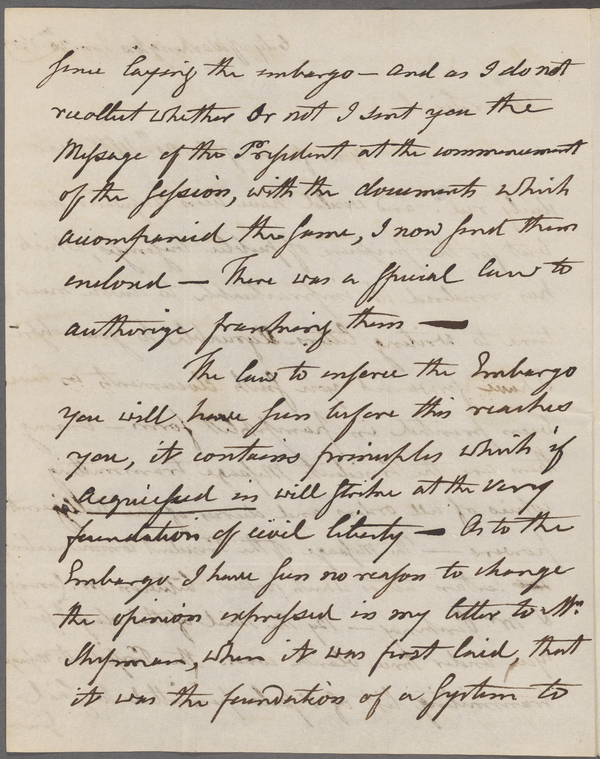 since laying the embargo — and as I do not
recollect whether or not I sent you the
Message of the President at the commencement
of the session, with the documents which
accompanied the same, I now send them
enclosed — There was a special law to
authorize franking them —
The law to enforce the Embargo
you will have seen before this reaches
you, it contains principles which if
acquiessed in will strike at the very
foundation of civil liberty — As to the
Embargo I have seen no reason to change
the opinion expressed in my letter to Mr.
Shipman, when it was first laid, that
it was the foundation of a system to